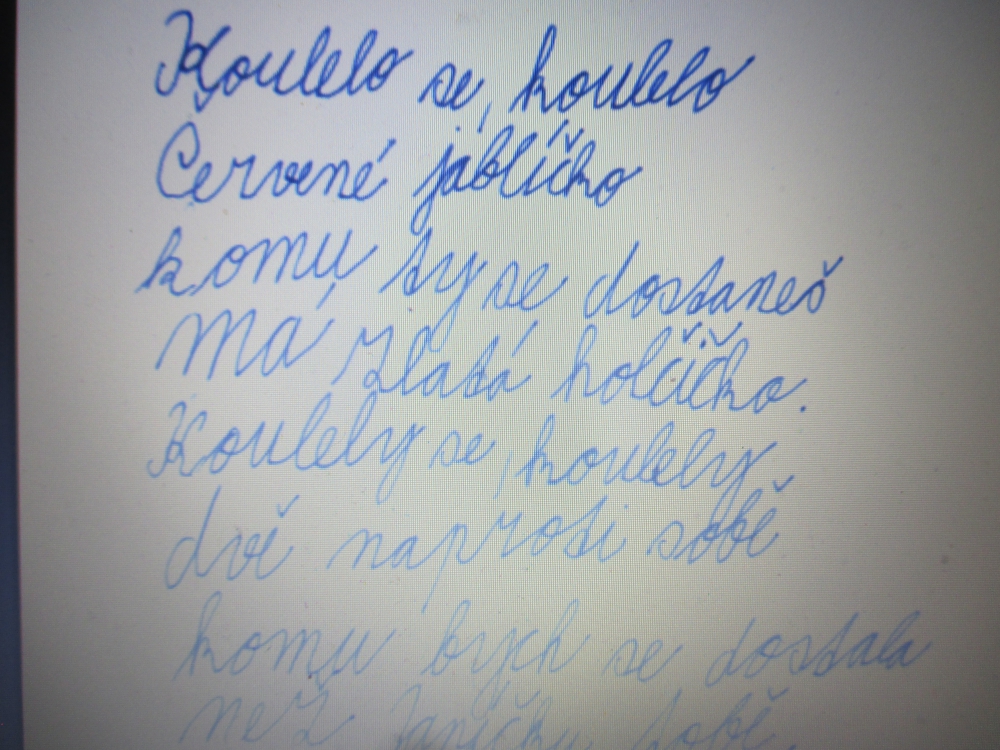 Koulelo se, koulelo
Červené jablíčko
komu ty se dostaneš
Má zlatá holčičko.
Koulely se, koulely
dvě naproti sobě
komu bych se dostala
než Janíčku tobě